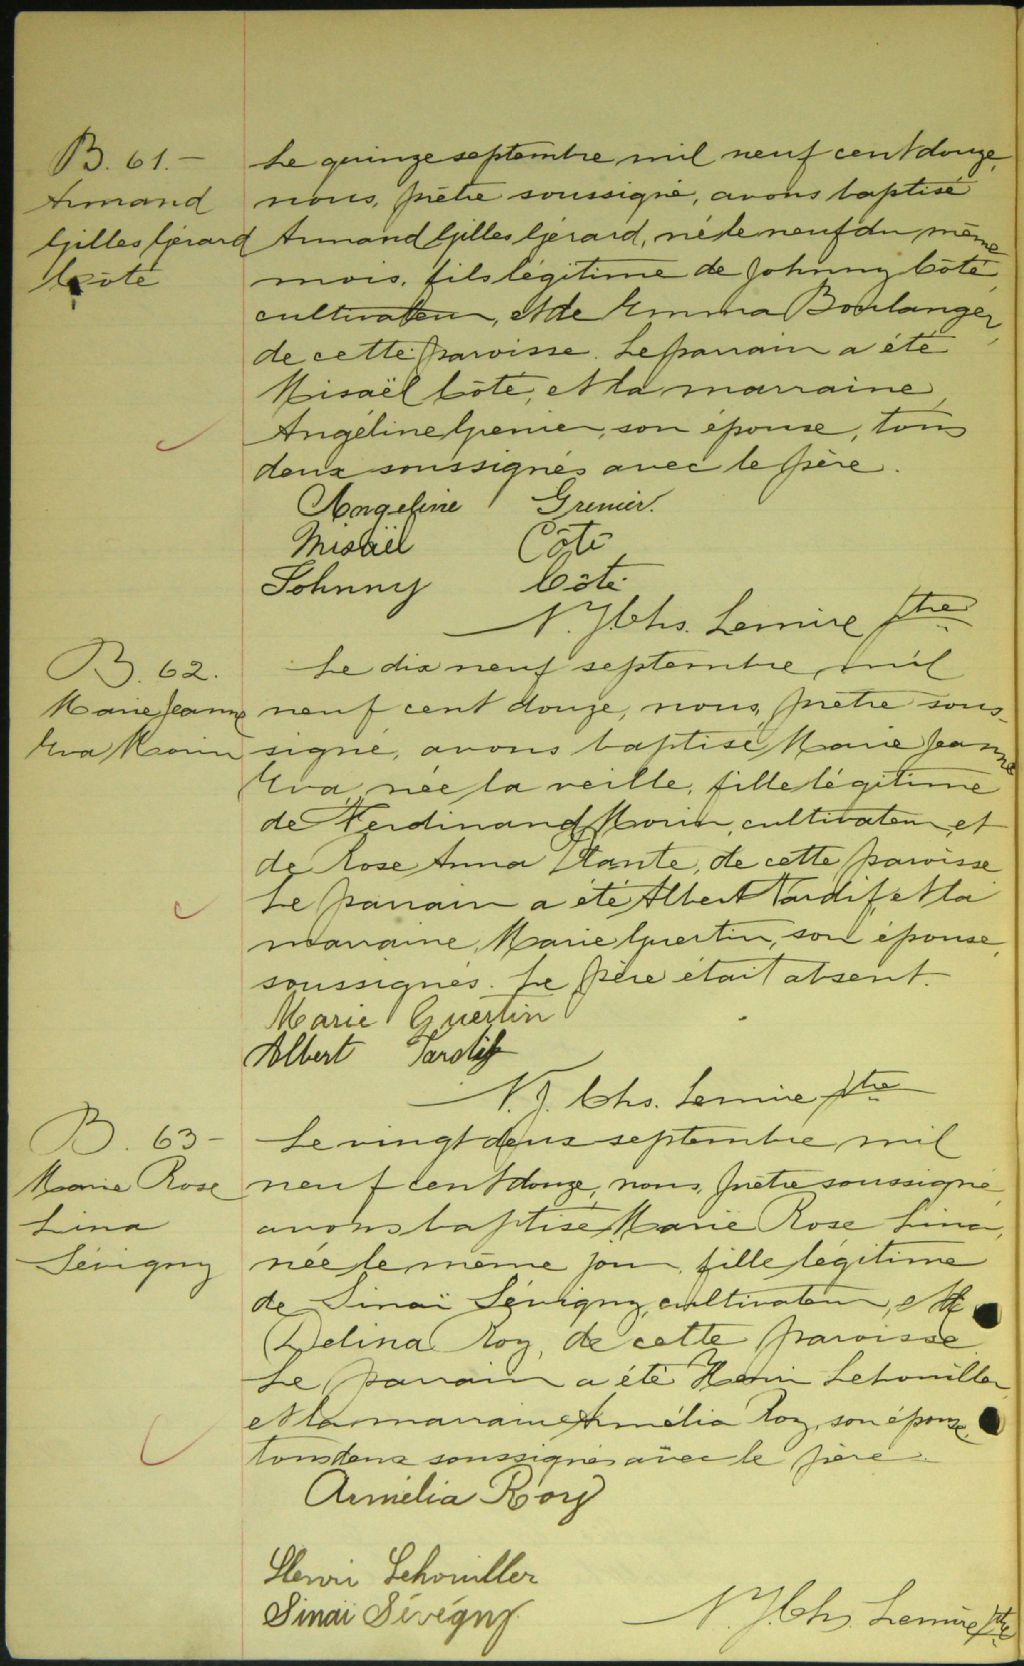 B. 61. –
Armand
Gilles Gérard
Côté
Le quinze septembre mil neuf cent douze,
nous, prêtre soussigné, avons baptisé
Armand Gilles Gérard, né le neuf du même
mois, fils légitime de Johnny Côté,
cultivateur, et de Emma Boulanger,
de cette paroisse. Le parrain a été
Misaël Côté, et la marraine,
Angéline Grenier, son épouse, tous
deux soussignés avec le père.
Angeline Grenier.
Misaël Côté
Johnny Côté
N. J. Chs. Lemire ptre
B. 62.
Marie Jeanne
Eva Morin
Le dix neuf septembre mil
neuf cent douze, nous, prêtre sous-
signé, avons baptisé Marie Jeanne
Eva, née la veille, fille légitime
de Ferdinand Morin, cultivateur, et
de Rose Anna Plante, de cette paroisse
Le parrain a été Albert Tardif, et la
marraine, Marie Guertin, son épouse,
soussignés. Le père était absent.
Marie Guertin
Albert Tardif
N. J. Chs. Lemire ptre
B. 63 –
Marie Rose
Lina
Sévigny
Le vingt deux septembre mil
neuf cent douze, nous, prêtre soussigné,
avons baptisé Marie Rose Lina,
née le même jour, fille légitime
de Sinaï Sévigny, cultivateur, et de
Delina Roy, de cette paroisse
Le parrain a été Henri Lehouiller,
et la marraine Armélia Roy, son épouse,
tous deux soussignés avec le père.
Armélia Roy
Henri Lehouiller
Sinaï Sévégny
N. J. Chs. Lemire ptre